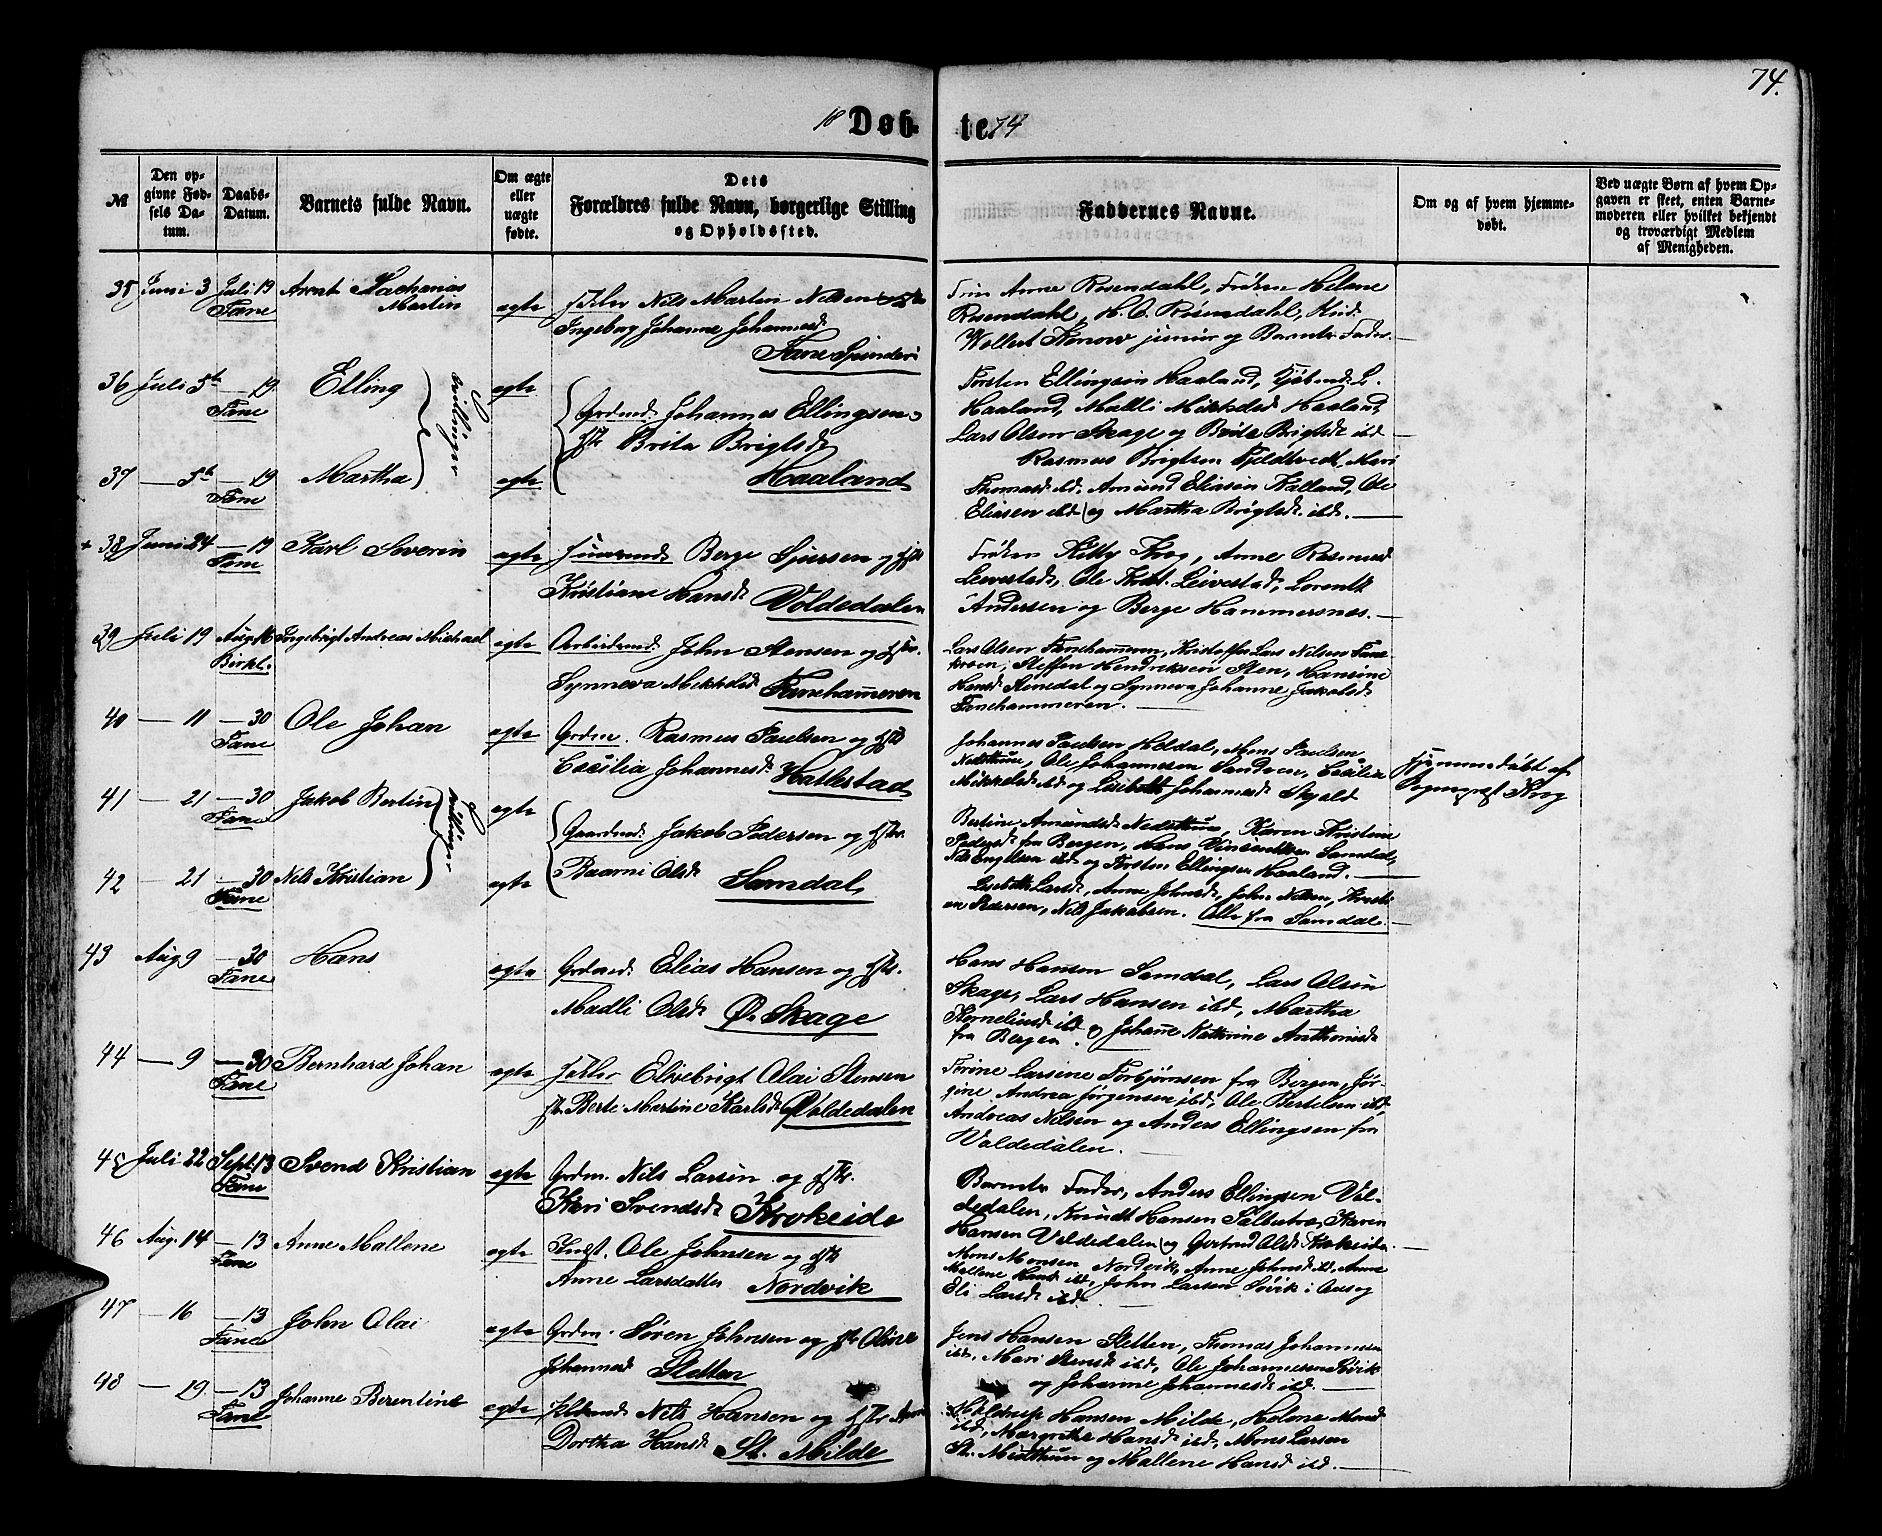 74.
18 Døb- te. 74
№
Den opgivne Fødsels Datum.
Daabs-Datum.
Barnets fulde Navn.
Om ægte eller uægte fødte.
Dets Forældres fulde Navn, borgerlige Stilling og Opholdssted.
Faddernes Navne.
Om og af hvem hjemmedøbt.
Ved uægte Børn af hvem Opgaven er skeet, enten Barnemoderen eller hvilket bekjendt og troværdigt Medlem af Menigheden.
35 Juni 3 Juli 19 Arent Zacharias ægte Nils Martin Nilsen
Fane Martin Ingeborg Johanne Johannesd.
Fane
Anne Rosendahl, Frøken Helene
Rosendahl, H. O. Rosendahl,
Wollert Konow junior og Barnets Fader.
36 Juli 5te — 19 Elling ægte
Fane Tvillinger Grdmd. Johannes Ellingsen
Hstr Brita Brigtsd.
Torsten Ellingsen Haaland,
Haaland, Madli Mikkelsd Haaland,
Lars Olsen Skage og Brita Brigtsd. ibd
37 — 5te — 19 Martha ægte Haaland
Fane
Rasmus Brigtsen Fjeldtvedt, Mari
Thomasd. ibd. Amund Eliasen Kalland, Ole
Eliasen ibd og Martha Brigtsd. ibd.
+ 38 Juni 24 — 19 Karl Severin ægte Berge Sjursen og Hstr
Fane Kristiane Hansd. Voldedalen
Frøken Kitty Krog, Anne Rasmusd
Leivestad, Ole Krist. Leivestad, Lorentz
Andersen og Berge Hammersnes.
39 Juli 19 Aug. 16 Ingebrigt Andreas Michael ægte Arbeidsmd. John Stensen og Hstr.
Birkl. Synneva Mikkelsd Fanehammeren
Lars Olsen Fanehammeren, Lars Nilsen
Steffen Hendriksen Sten, Hansine
Hansd. Stensdal og Synneva Johanne Jakobsd.
Fanehammeren.
40 — 11 — 30 Ole Johan ægte Grdm. Rasmus Paulsen og Hstr
Fane Cecilia Johannesd. Hatlestad
Johannes Paulsen Heldal, Mons Paulsen
Nedsttun, Ole Johannesen Sandven, Cecilie
Mikkelsd ibd og Lisbeth Johannesd. Skjold
Hjemmedøbt af
Sogneprest Krog
41 — 21 — 30 Jakob Bertin ægte
Fane Tvillinger Gaardmd. Jakob Pedersen og Hstr.
Bertine Amundsd. Nedsttun, Karen Kristine
Pedersd. fra Bergen, Hans Samdal,
Nils Engelsen ibd og Torsten Ellingsen Haaland.
42 — 21 — 30 Nils Kristian ægte Olsd. Samdal
Fane
Lisbeth Larsd., Anne Johnsd., John Nilsen, Kristian
Pedersen, Nils Jakobsen. Alle fra Samdal.
43 Aug 9 — 30 Hans ægte Grdmd. Elias Hansen og Hstr.
Fane Madli Olsd. Ø. Skage
Hans Hansen Samdal, Lars Olsen
Skage, Lars Hansen ibd, Martha
Korneliusd ibd og Johanne Kathrine Anthonisd.
fra Bergen.
44 — 9 — 30 Bernhard Johan ægte Olai Stensen
Fane Berte Martine Karlsd. Voldedalen
Torine Larsine Torbjørnsen fra Bergen, Jørgine
Andrea Jørgensen ibd, Ole Bertelsen ibd,
Andreas Nilsen og Anders Ellingsen fra
Valdedalen.
45 Juli 22 Sept. 13 Svend Kristian ægte Grdm. Nils Larsen og Hstr.
Fane Kari Svendsd. Krokeide
Barnets Fader, Anders Ellingsen Valdedalen,
Knudt Hansen Karen
Hansen Valdedalen og Gertrud Olsd. Krokeide.
46 Aug. 14 — 13 Anne Mallene ægte Indst. Ole Johnsen og Hstr
Fane Anne Larsdatter Nordvik
Mons Monsen Nordvik, Anne Johnsd. ibd, Anne
Mallene Hansd. ibd, John Larsen Søvik i Aus og
Eli Larsd. ibd.
47 — 16 — 13 John Olai ægte Grdm. Søren Johnsen og Hstr Oline
Fane Johannesd Stetten
Jens Hansen Sletten, Thomas Johannesen
ibd, Mari Stensd. ibd, Ole Johannesen Søvik
og Johanne Johannesd. ibd.
48 — 19 — 13 Johanne Berentine ægte Nils Hansen og Hstr
Fane Dorthea Hansd. St. Milde
Hansen Milde, Helene Monsd
ibd, Margrethe Hansd. ibd, Mons Larsen
og Mallene Hansd. ibd.